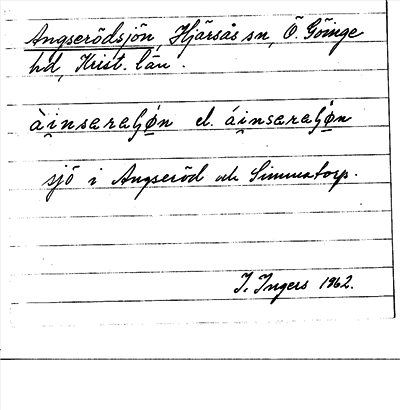 Angserödsjön, Hjärsås sn, Ö. Göinge
hd, Krist. län.
àinsæraʃǿn el. áinsæraʃǿn
sjö i Angseröd och Simmatorp.
I. Ingers 1962.